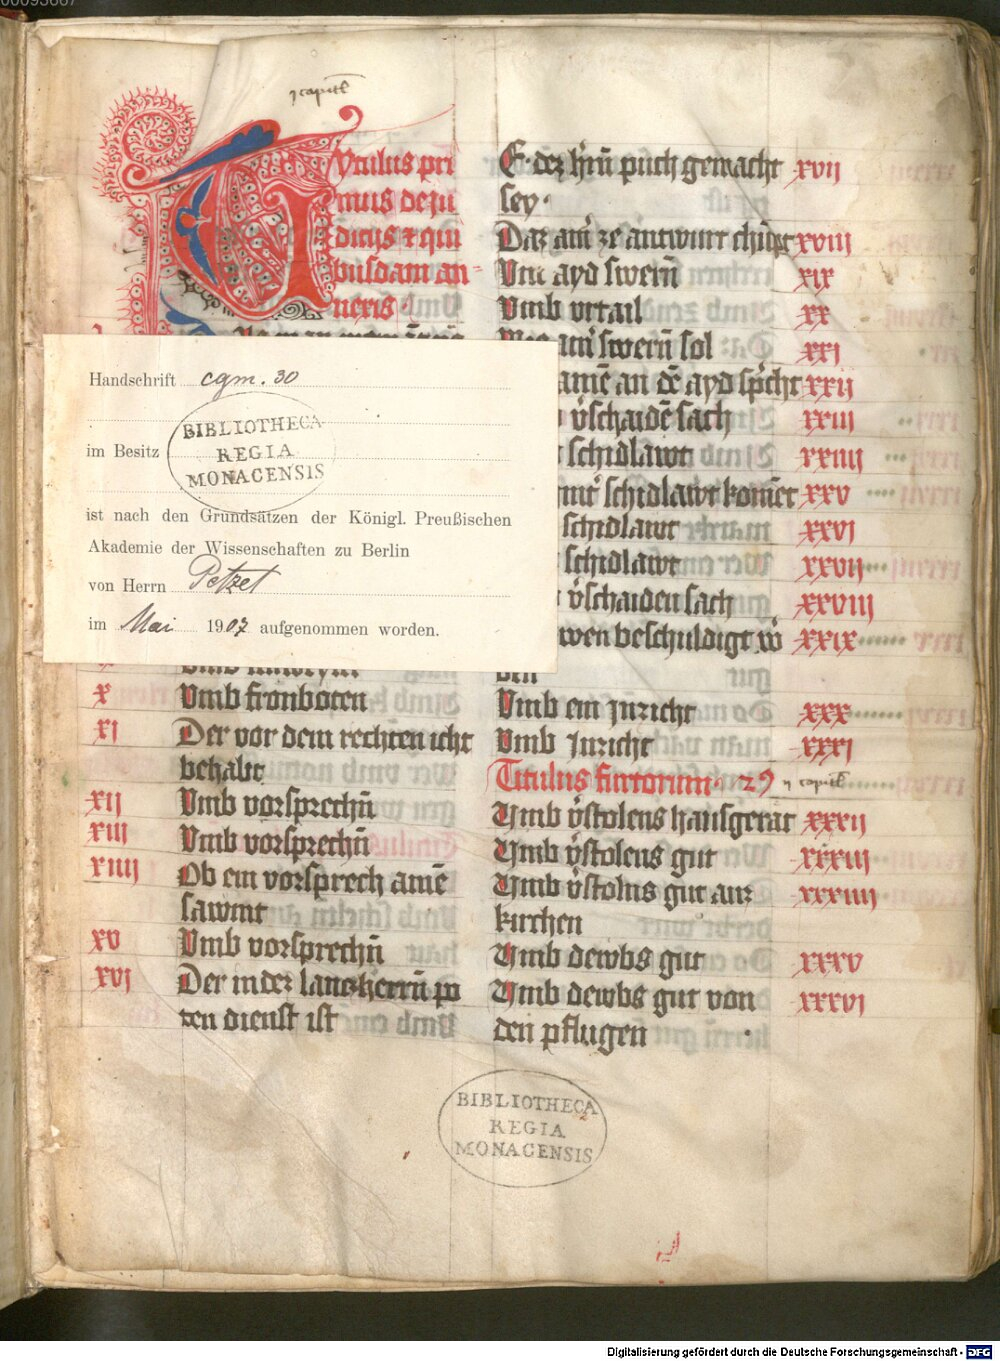 Titulus pri
mus de iu
dicijs et qui
busdam an
neris

Handschrift cgm. 30
BIBLIOTHECA
REGIA
MONACENSIS
im Besitz
ist nach den Grundsätzen der Königl. Preußischen
Akademie der Wissenschaften zu Berlin
von Herrn Petzet
im Mai 1907 aufgenommen worden.

x Vmb fronboten
xi Der vor dem rechten icht
behabt
xii Vmb vorsprechn̄
xiii Vmb vorsprechn̄
xiiii Ob ein vorsprech amē
sawmt
xv Vmb vorsprechn̄
xvi Der in dez lantzherrn̄ po
ten dienst ist

E dez hr̄n puch gemacht xvii
sey
Daz ain ze antwurt chūpt xviii
Vm ayd swern̄ xix
Vmb vrtail xx
ain swern̄ sol xxi
amē an dē ayd spͥcht xxii
v̈schaidē sach xxiii
schidlawt xxiiii
schidlawt komēt xxv
schidlawt xxvi
schidlawt xxvii
v̈schaiden sach xxviii
wen beschuldigt w̄ xxix
den
Vmb ein inzicht xxx
Vmb Inzicht xxxi
Titulus furtorum
Vmb v̈stolens hausgerat xxxii
Vmb v̈stolens gut xxxiii
Vmb v̈stolns gut auz xxxiiii
kirchen
Vmb dewbs gut xxxv
Vmb dewbs gut von xxxvi
den pflugen
BIBLIOTHECA
REGIA
MONACENSIS
Digitalisierung gefördert durch die Deutsche Forschungsgemeinschaft - DFG